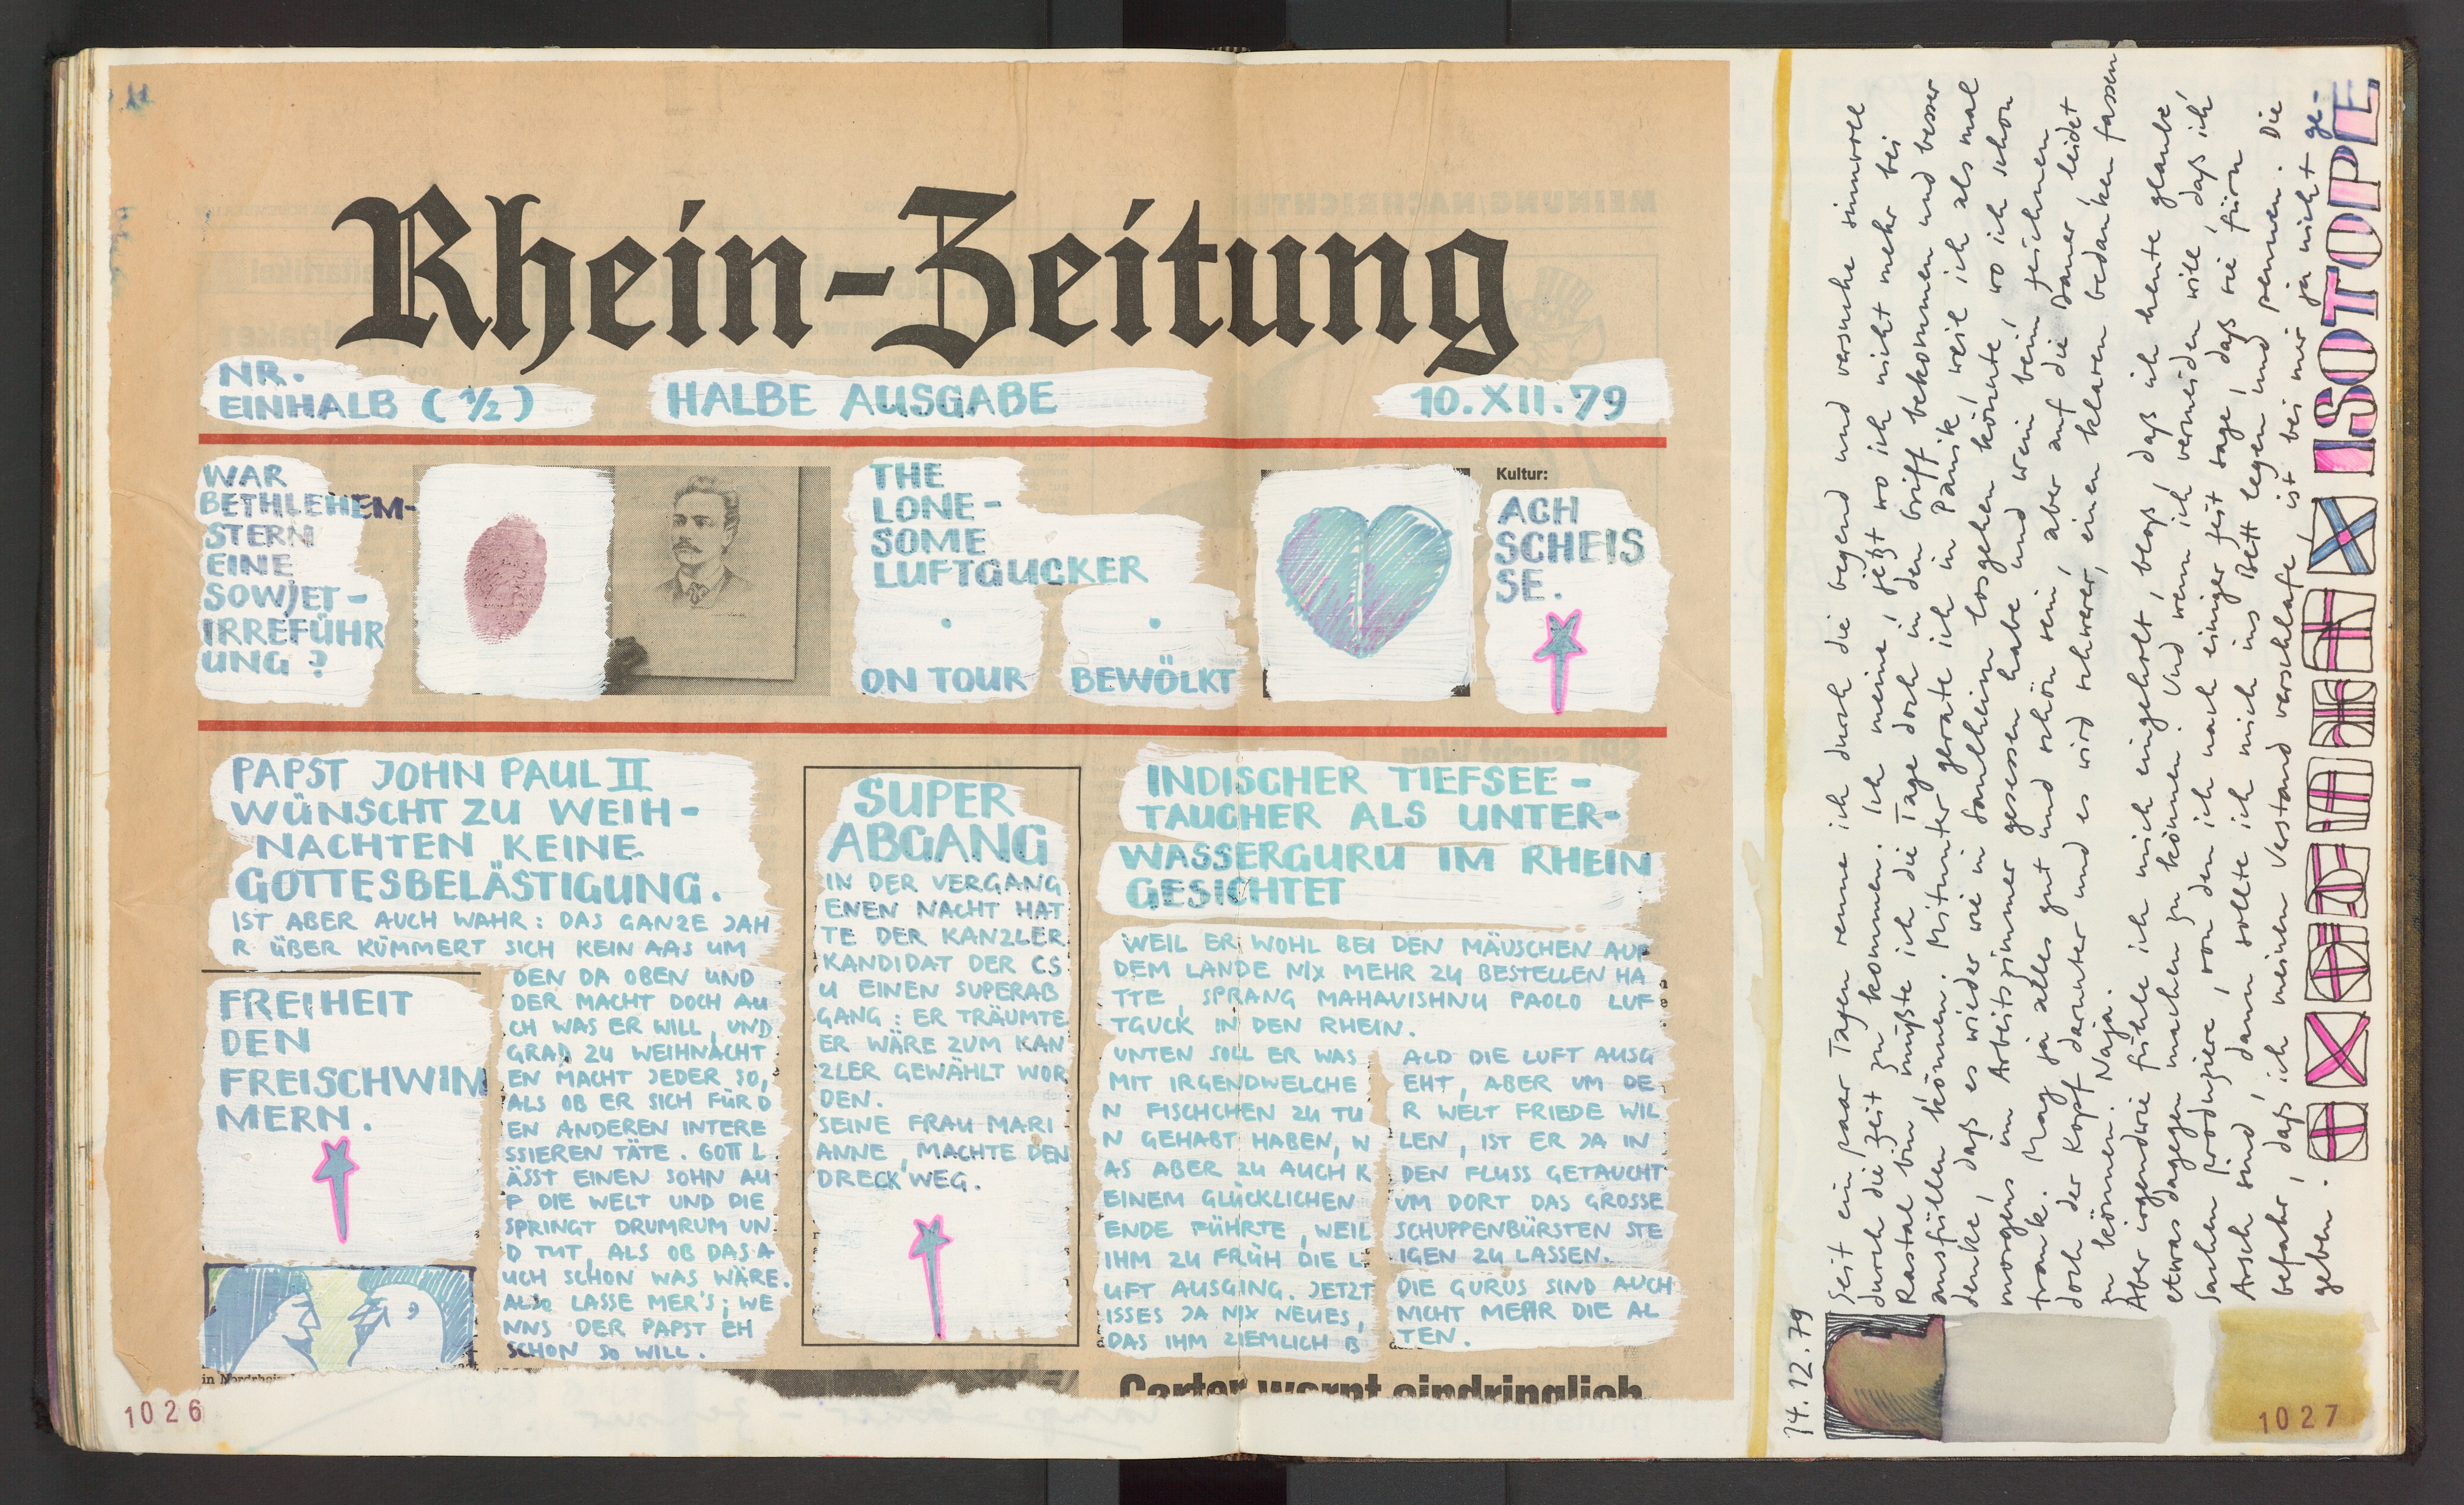 Rhein-Zeitung
NR.
EINHALB (1/2)
HALBE AUSGABE
10.XII.79
WAR
BETHLEHEM-
STERN
EINE
SOWJET-
IRREFÜHR
UNG ?
THE
LONE-
SOME
LUFTGUCKER
ON TOUR
BEWÖLKT
Kultur:
ACH
SCHEIS
SE.
PAPST JOHN PAUL II
WÜNSCHT ZU WEIH-
NACHTEN KEINE
GOTTESBELÄSTIGUNG.
IST ABER AUCH WAHR: DAS GANZE JAH
R ÜBER KÜMMERT SICH KEIN AAS UM
DEN DA OBEN UND
DER MACHT DOCH AU
CH WAS ER WILL, UND
GRAD ZU WEIHNACHT
EN MACHT JEDER SO,
ALS OB ER SICH FÜR D
EN ANDEREN INTERE
SSIEREN TÄTE. GOTT L
ÄSST EINEN SOHN AU
F DIE WELT UND DIE
SPRINGT DRUMRUM UN
D TUT, ALS OB DAS A
UCH SCHON WAS WÄRE.
ALSO LASSE MER'S; WE
NNS DER PAPST EH
SCHON SO WILL.
FREIHEIT
DEN
FREISCHWIM
MERN.
in Nordrhein
SUPER
ABGANG
IN DER VERGANG
ENEN NACHT HAT
TE DER KANZLER
KANDIDAT DER CS
U EINEN SUPERAB
GANG: ER TRÄUMTE
ER WÄRE ZUM KAN
ZLER GEWÄHLT WOR
DEN.
SEINE FRAU MARI
ANNE, MACHTE DEN
DRECK WEG.
INDISCHER TIEFSEE-
TAUCHER ALS UNTER-
WASSERGURU IM RHEIN
GESICHTET
WEIL ER WOHL BEI DEN MÄUSCHEN AUF
DEM LANDE NIX MEHR ZU BESTELLEN HA
TTE, SPRANG MAHAVISHNU PAOLO LUF
TGUCK IN DEN RHEIN.
UNTEN SOLL ER WAS
MIT IRGENDWELCHE
N FISCHCHEN ZU TU
N GEHABT HABEN, W
AS ABER ZU AUCH K
EINEM GLÜCKLICHEN
ENDE FÜHRTE, WEIL
IHM ZU FRÜH DIE L
UFT AUSGING. JETZT
ISSES JA NIX NEUES,
DAS IHM ZIEMLICH B
ALD DIE LUFT AUSG
EHT, ABER UM DE
R WELT FRIEDE WIL
LEN, IST ER JA IN
DEN FLUSS GETAUCHT
UM DORT DAS GROSSE
SCHUPPENBÜRSTEN STE
IGEN ZU LASSEN.
DIE GURUS SIND AUCH
NICHT MEHR DIE AL
TEN.
Carter warnt eindringlich
1026
14.12.79
Seit ein paar Tagen renne ich durch die Gegend und versuche sinnvoll
durch die Zeit zu kommen. Ich meine, jetzt wo ich nicht mehr bei
Rastal bin, müßte ich die Tage doch in den Griff bekommen und besser
ausfüllen können. Mitunter gerate ich in Panik, weil ich als mal
denke, daß es wieder wie in Saulheim losgehen könnte, wo ich schon
morgens im Arbeitszimmer gesessen habe und Wein beim Zeichnen
trank. Mag ja alles gut und schön sein, aber auf die Dauer leidet
doch der Kopf darunter und es wird schwerer, einen klaren Gedanken fassen
zu können. Naja.
Aber irgendwie fühle ich mich eingeholt, bloß, daß ich heute glaube,
etwas dagegen machen zu können. Und wenn ich vermeiden will, daß ich
Sachen produziere, von den ich nach einiger Zeit sage, daß sie fürn
Arsch sind, dann sollte ich mich ins Bett legen und pennen. Die
Gefahr, daß ich meinen Verstand verschlafe, ist bei mir ja nicht ge-
geben.
ISOTOPE
1027